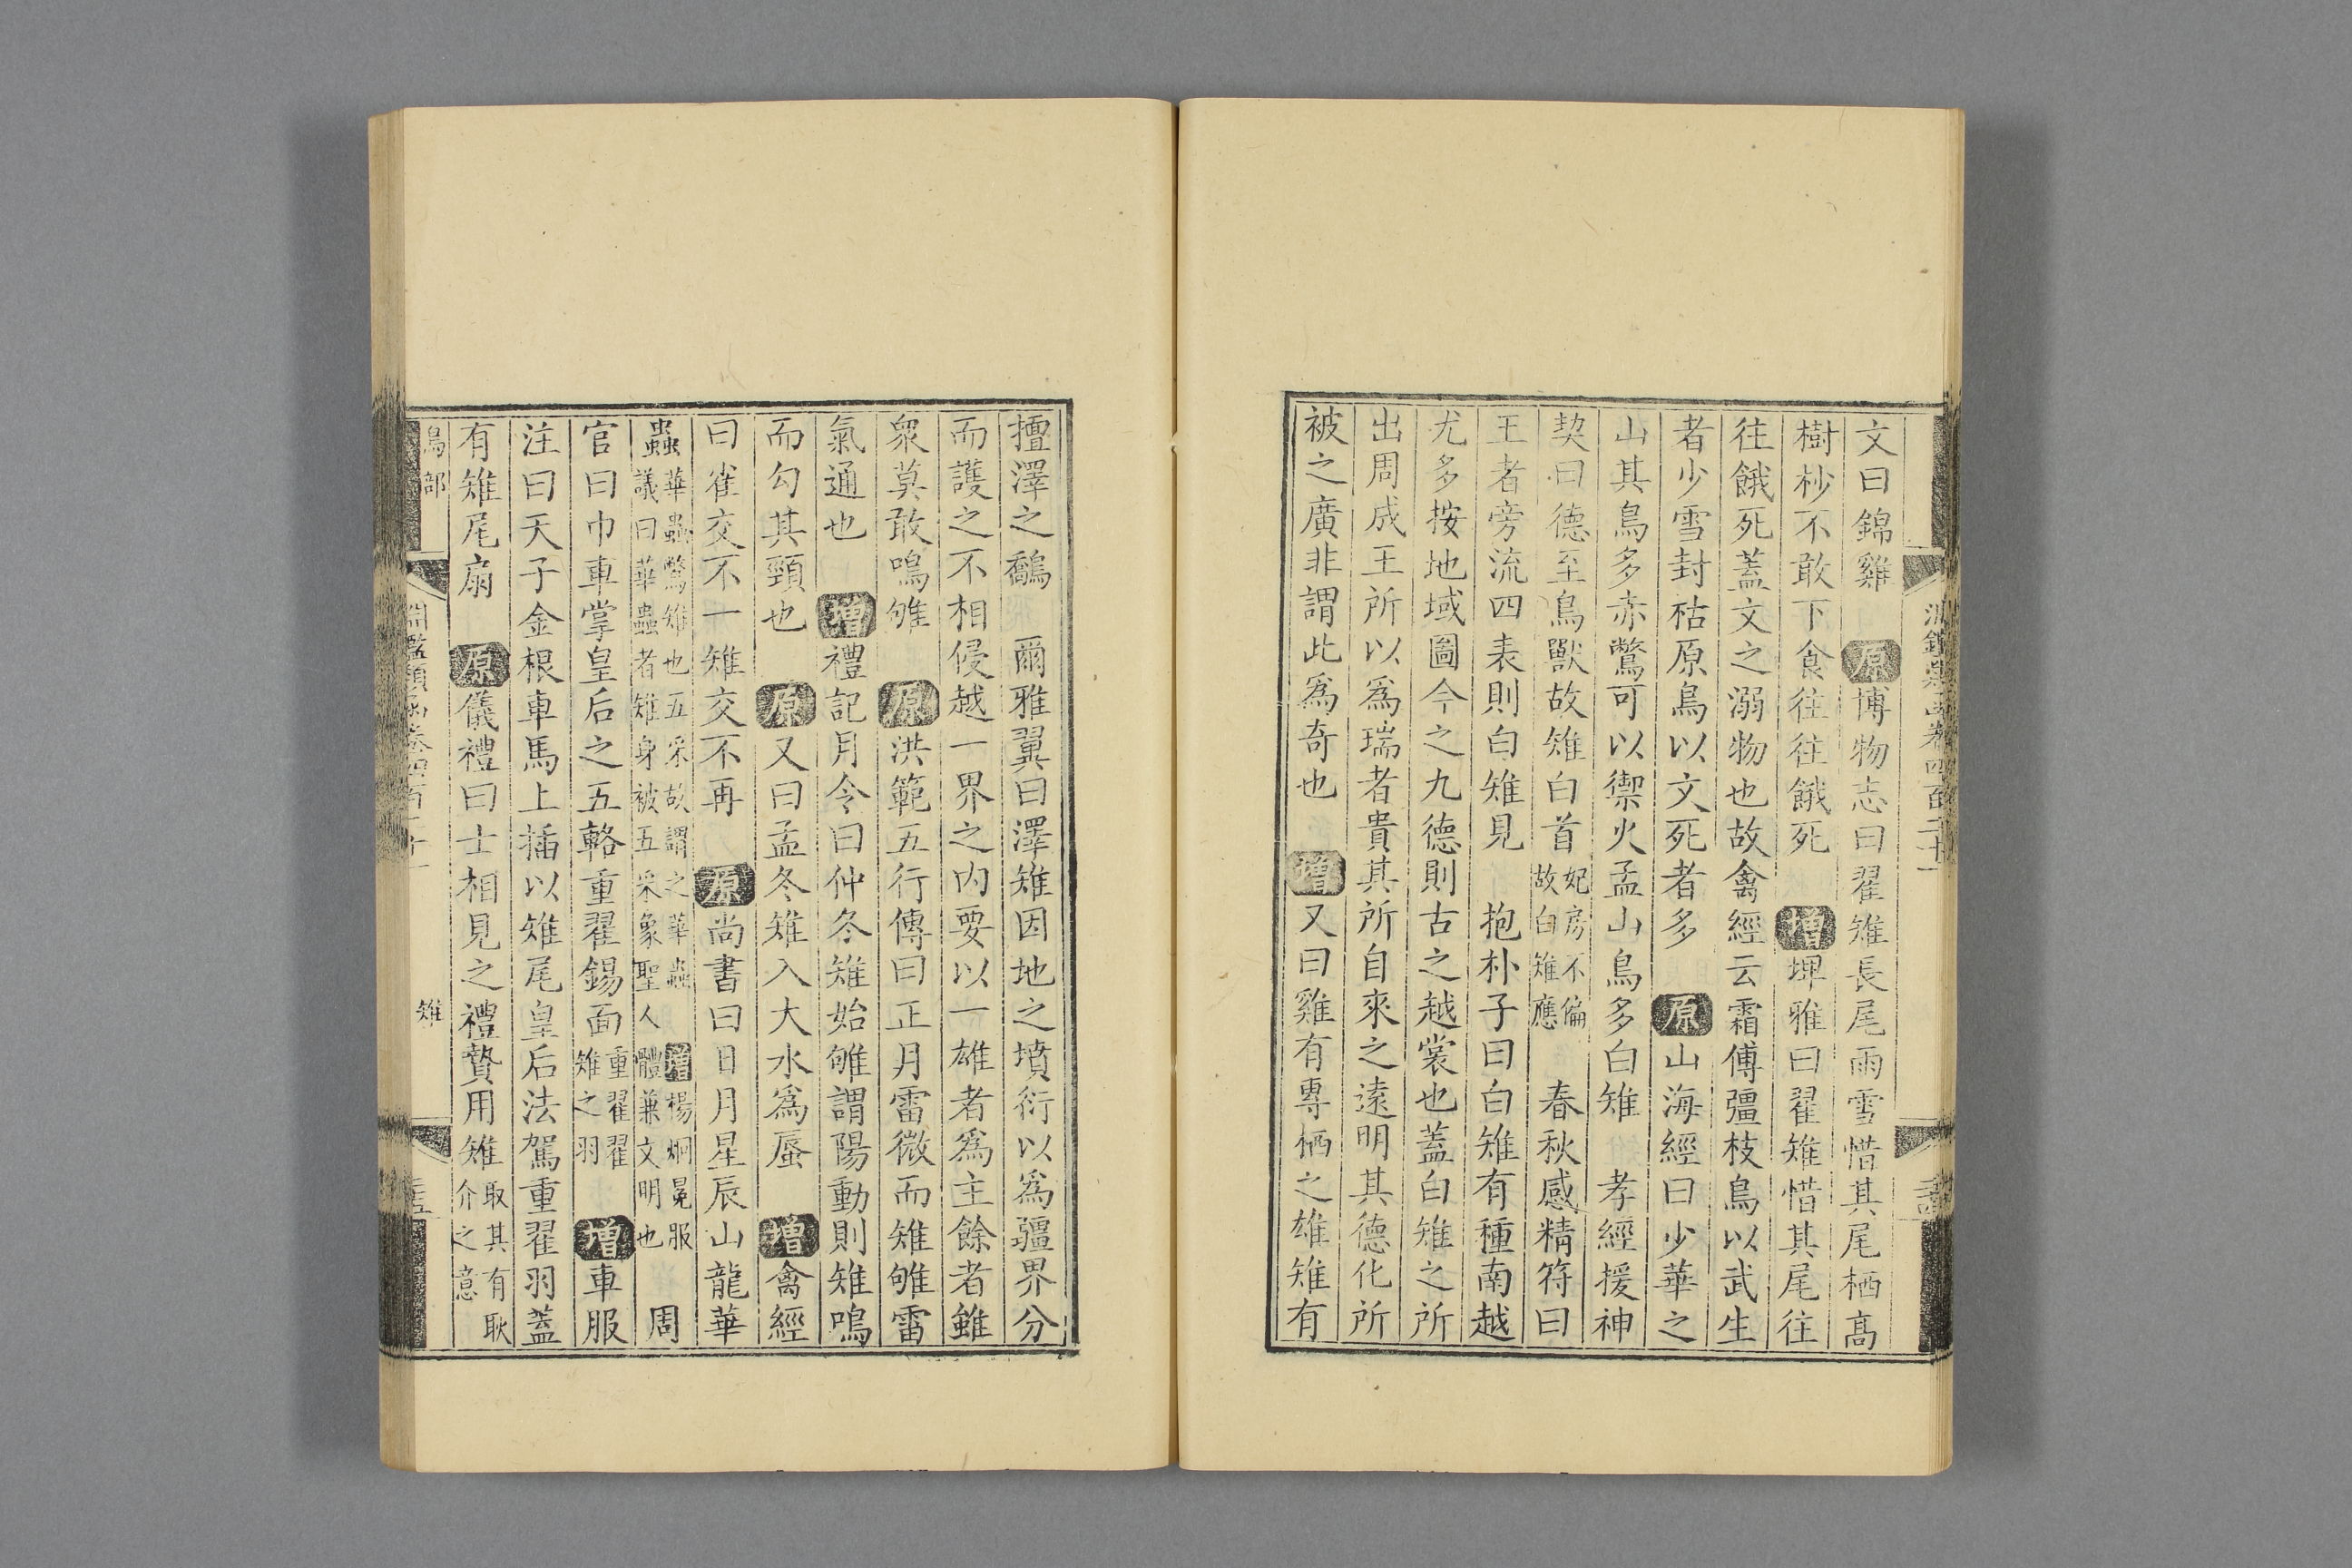 文曰錦雞　原博物志曰翟雉長尾雨雪惜其尾栖高
樹杪不敢下食往往餓死　增埤雅曰翟雉惜其尾往
往餓死蓋文之溺物也故禽經云霜傅彊枝鳥以武生
者少雪封枯原鳥以文死者多　原山海經曰少華之
山其鳥多赤鷩可以禦火孟山鳥多白雉　孝經援神
契曰德至鳥獸故雉白首妃房不偏故白雉應　春秋感精符曰
王者旁流四表則白雉見　抱朴子曰白雉有種南越
尤多按地域圖今之九德則古之越裳也蓋白雉之所
出周成王所以為瑞者貴其所自來之遠明其德化所
被之廣非謂此為奇也　增又曰雞有專栖之雄雉有
擅澤之鷮　爾雅翼曰澤雉因地之墳衍以為疆界分
而護之不相侵越一界之內要以一雄者為主餘者雖
衆莫敢鳴雊　原洪範五行傳曰正月雷微而雉雊雷
氣通也　增禮記月令曰仲冬雉始雊謂陽動則雉鳴
而勾其頸也　原又曰孟冬雉入大水為蜃　增禽經
曰雀交不一雉交不再　原尚書曰日月星辰山龍華
蟲華蟲鷩雉也五采故謂之華蟲議曰華蟲者雉身被五采象聖人增楊炯冕服體兼文明也　周
官曰巾車掌皇后之五輅重翟錫面重翟翟雉之羽　增車服
注曰天子金根車馬上插以雉尾皇后法駕重翟羽蓋
有雉尾扇　原儀禮曰士相見之禮贄用雉取其有耿介之意
鳥部
雉